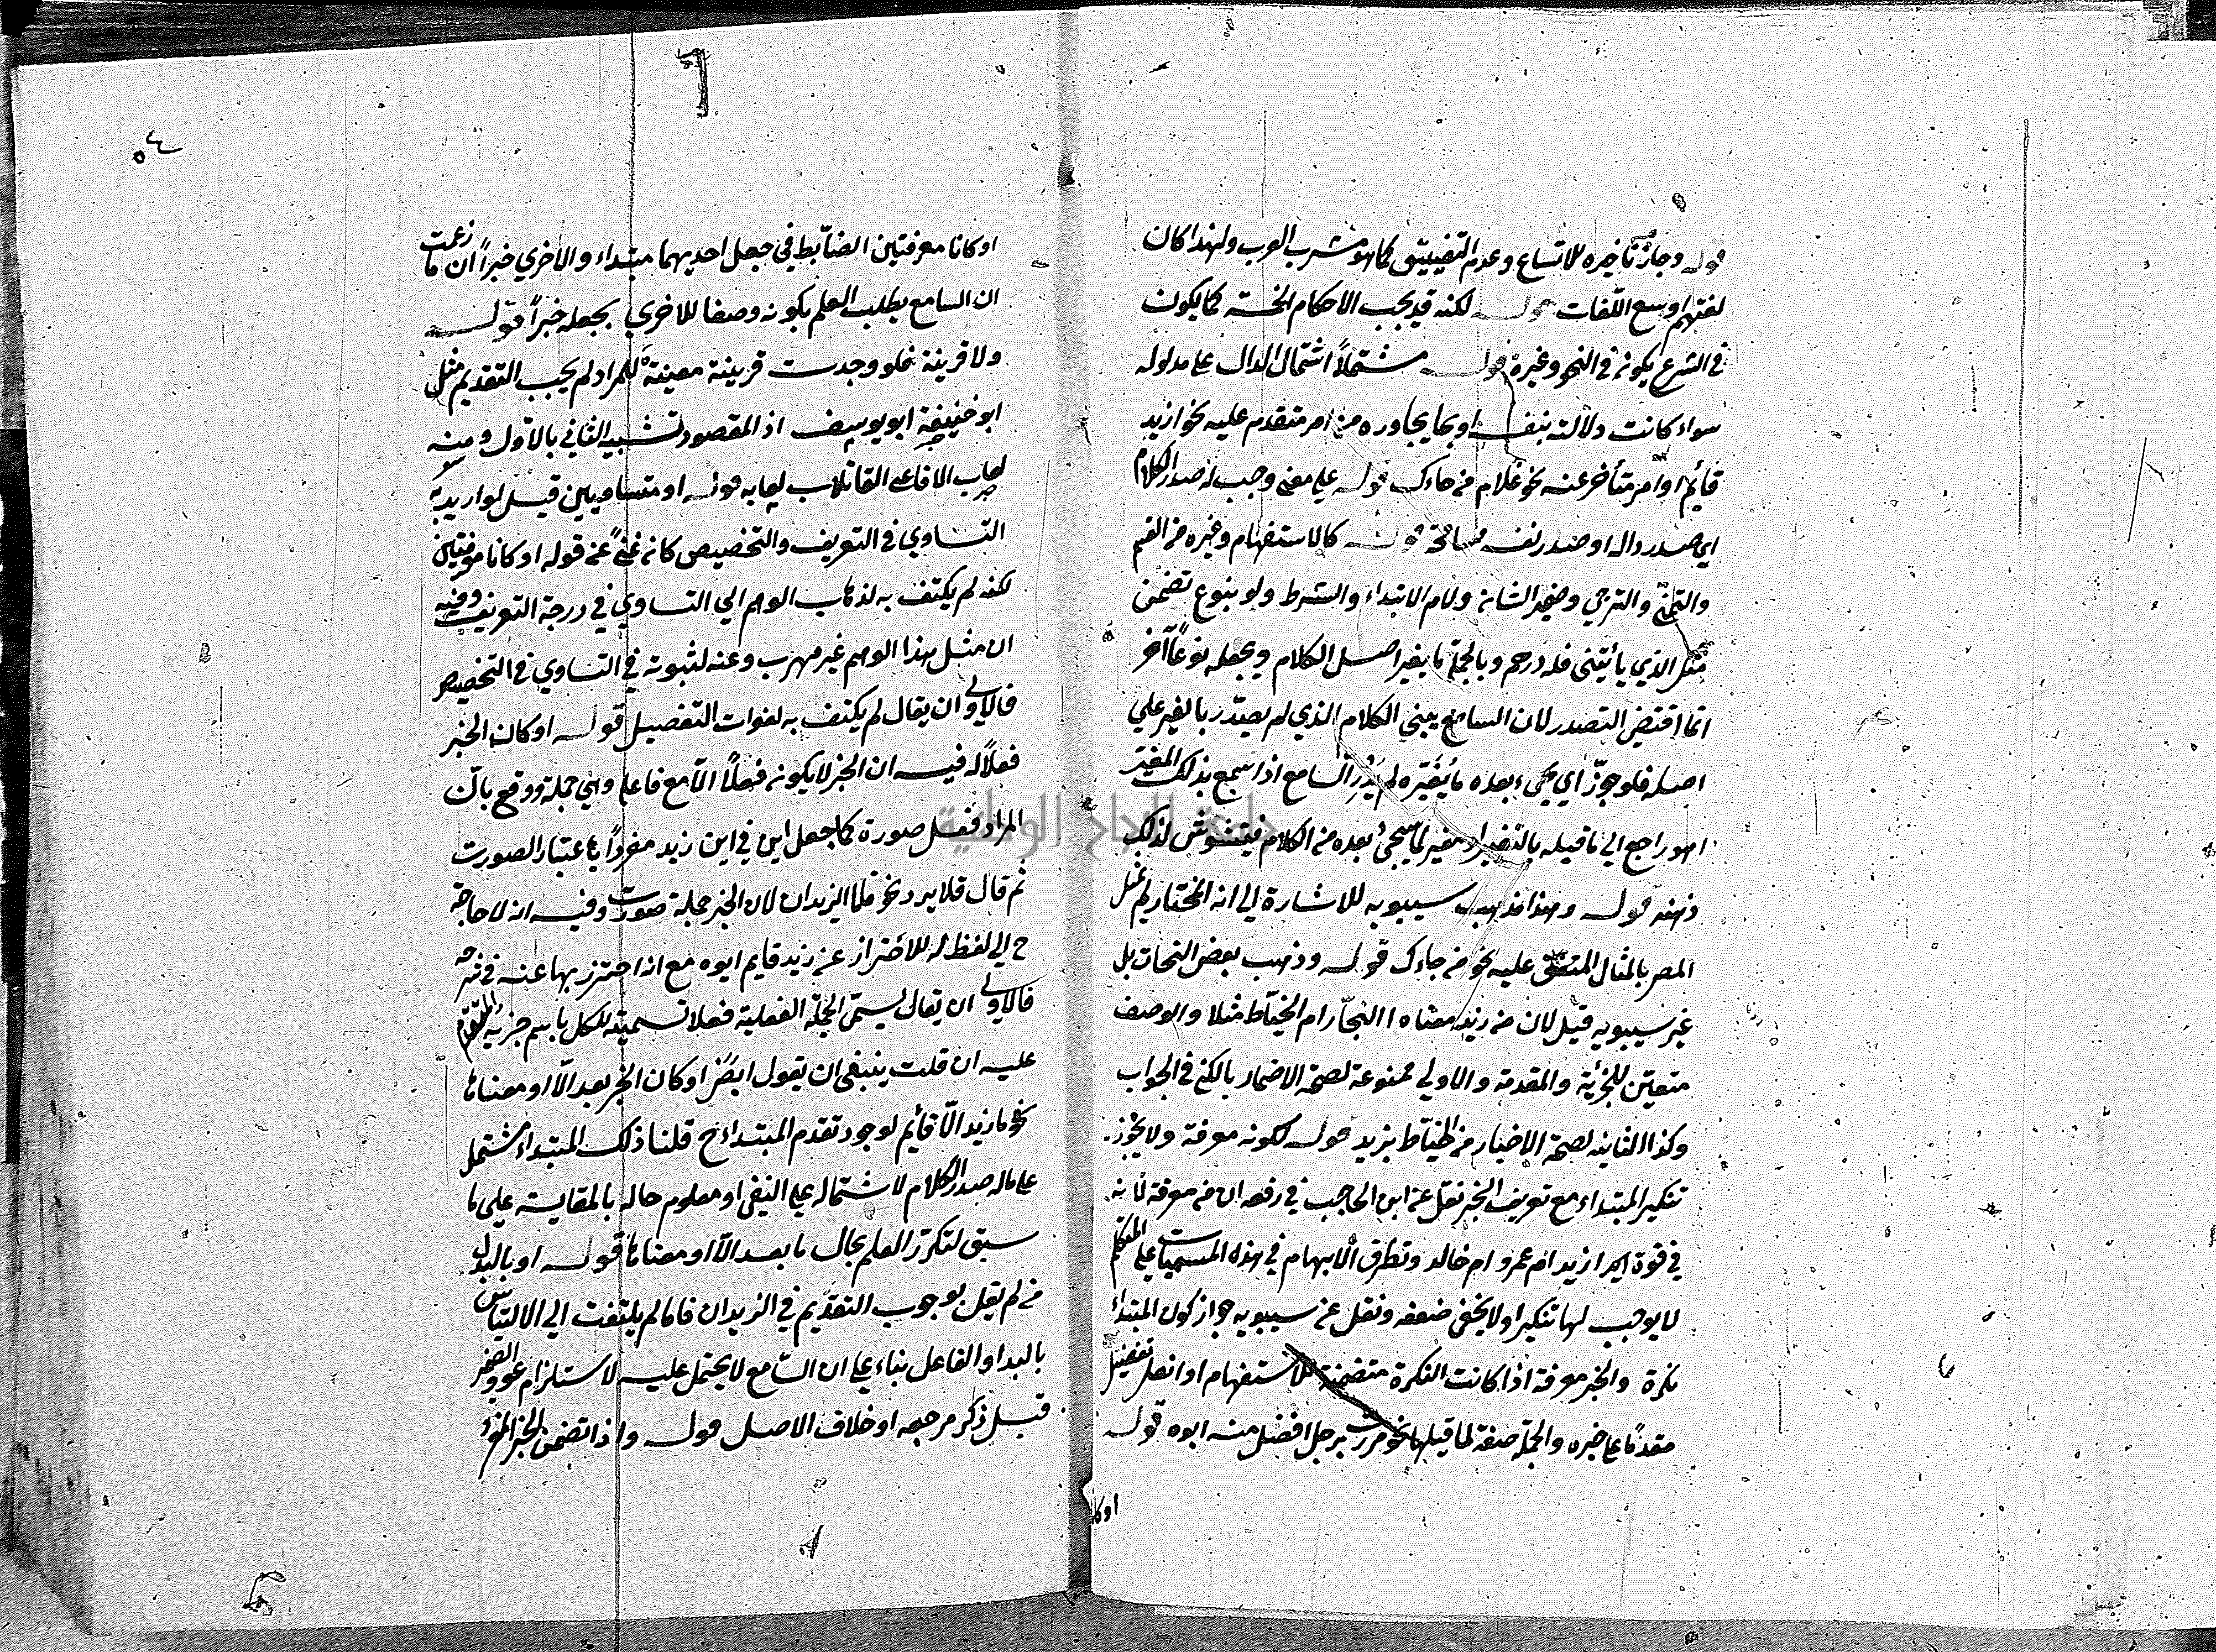 قوله وجاز تأخيره للاتساع وعدم التضييق كما هو مشرب العرب ولهذا كان
لغتهم اوسع اللّغات قوله لكنه قد يجب الاحكام الخمسة كما يكون
في الشرع يكون في النحو وغيره قوله مشتملاً اشتمال الدال على مدلوله
سواء كانت دلالته بنفسه او بما يجاوره من امر متقدم عليه نحو ازيد
قائم او امر متأخر عنه نحو غلام من جاءك قوله على معنى وجب له صدر الكلام
اي صدر داله او صدر نفسه مسامحة قوله كالاستفهام وغيره من القسم
والتمنّي والترجي وضمير الشان ولام الابتداء والشرط ولو بنوع تضمن
مثل الذي يأتيني فله درهم وبالجملة ما يغير اصل الكلام ويجعله نوعاً آخر
انما اقتضى التصدر لان السامع يبني الكلام الذي لم يصدّر بالمغير على
اصله فلو جوّز اي يجيء بعده ما يغيّره لم يَدْرِ السامع اذا سمع بذلك المغيّر
اهو راجع الى ما قبله بالتغيير او مغير لما سيجيء بعده من الكلام فيتشوش لذلك
ذهنه قوله وهذا مذهب سيبويه للاشارة الى انه المختار لم يمثل
المصر بالمثال المتفق عليه نحو من جاءك قوله وذهب بعض النحات بل
غير سيبويه قيل لان من زيد معناه االنجّار ام الخيّاط مثلا والوصف
متعيّن للخبريّة والمقدمة والاولى ممنوعة لصحة الاضمار بالكنى في الجواب
وكذا الثانية لصحة الاخبار من الخيّاط بزيد قوله لكونه معرفة ولا يجوز
تنكير المبتداء مع تعريف الخبر نقل عن ابن الحاجب في دفعه ان من معرفة لأنه
في قوة ازيد ام عمرو ام خالد وتطرق الابهام في هذه المسميات على المتكلم
لا يوجب لها تنكيرا ولا يخفى ضعفه ونقل عن سيبويه جواز كون المبتدأ
نكرة والخبر معرفة اذا كانت النكرة متضمنة للاستفهام او افعل تفضيل
مقدمًا على خبره والجملة صفة لما قبلها نحو مررت برجل افضل منه ابوه قوله
اوكا
٥٤
او كانا معرفتين الضابط في جعل احديهما مبتداء والاخري خبراً ان ما زعمت
ان السامع يطلب العلم بكونه وصفا للاخري بجعله خبراً قوله
ولا قرينة فلو وجدت قرينة معينة للمراد لم يجب التقديم مثل
ابو حنيفة ابو يوسف اذ المقصود تشبيه الثاني بالاول ومنه
لعاب الافاعي القاتلات لعابه قوله او متساويين قيل لو اريد به
التساوي في التعريف والتخصيص كانه غنيً عن قوله او كانا معرفتين
لكنه لم يكتف به لذهاب الوهم الي التساوي في درجة التعريف وفيه
ان مثل هذا الوهم غير مهرب وعنه لثبوته في التساوي في التخصيص
فالاولى ان يقال لم يكتف به لفوات التفصيل قوله او كان الخبر
فعلاً له فيه ان الخبر لا يكون فعلاً الّا مع فاعله وهي جملة ووقع بانّ
المراد فعل صورة كما جعل اين في اين زيد مفرداً باعتبار الصورت
ثم قال فلا يرد نحو قاما الزيدان لان الخبر جملة صورت وفيه انه لا حاجة
ح الي لفظ له للاحتراز عن زيد قايم ابوه مع انه احترز بها عنه في شرحه
فالاولى ان يقال يسمّى الجملة الفعلية فعلا تسمية للكل باسم جزئه المتقدّم
عليه ان قلت ينبغي ان يقول ايضًا او كان الخبر بعد الّا او معناها
نحو ما زيد الّا قائم لوجود تقدم المبتداء ح قلنا ذلك المبتداء مشتمل
على ماله صدر الكلام لاشتماله على النفي او معلوم حاله بالمقايسة على ما
سبق لتكرّر العلم بحال ما بعد الّا او معناها قوله او بالبدل
من لم يقل بوجوب التقديم في الزيدان قاما لم يلتفت الي الالتباس
بالبدل والفاعل بناء على ان السّامع لا يحتمل عليه لاستلزام عود الضمير
قبل ذكر مرجعه او خلاف الاصل قوله واذا تضمن الخبر المفرد